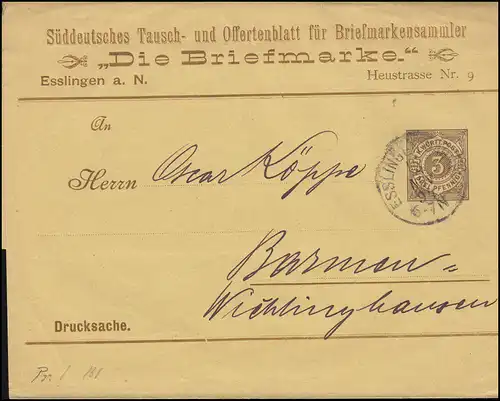 Süddeutsches Tausch- und Offertenblatt für Briefmarkensammler
„Die Briefmarke."
Esslingen a. N. Heustrasse Nr. 9
An
Herrn Oscar Köppe
K. WÜRTT. POST
3
DREI PFENNIG
ESSLINGEN
6-7 N
Barmen=
Wichlinghausen
Drucksache.